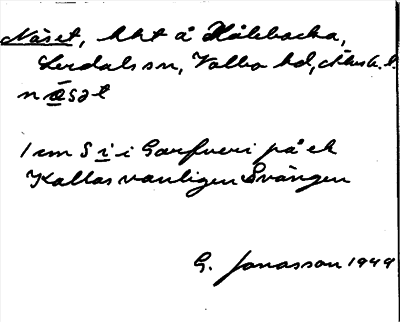 Näset, hht å Hålebacka,
Lerdals sn, Valbo hd, Älvsb. l.
næsət
1 cm S i i Garfveri på ek
Kallas vanligen Svängen
G. Jonasson 1949